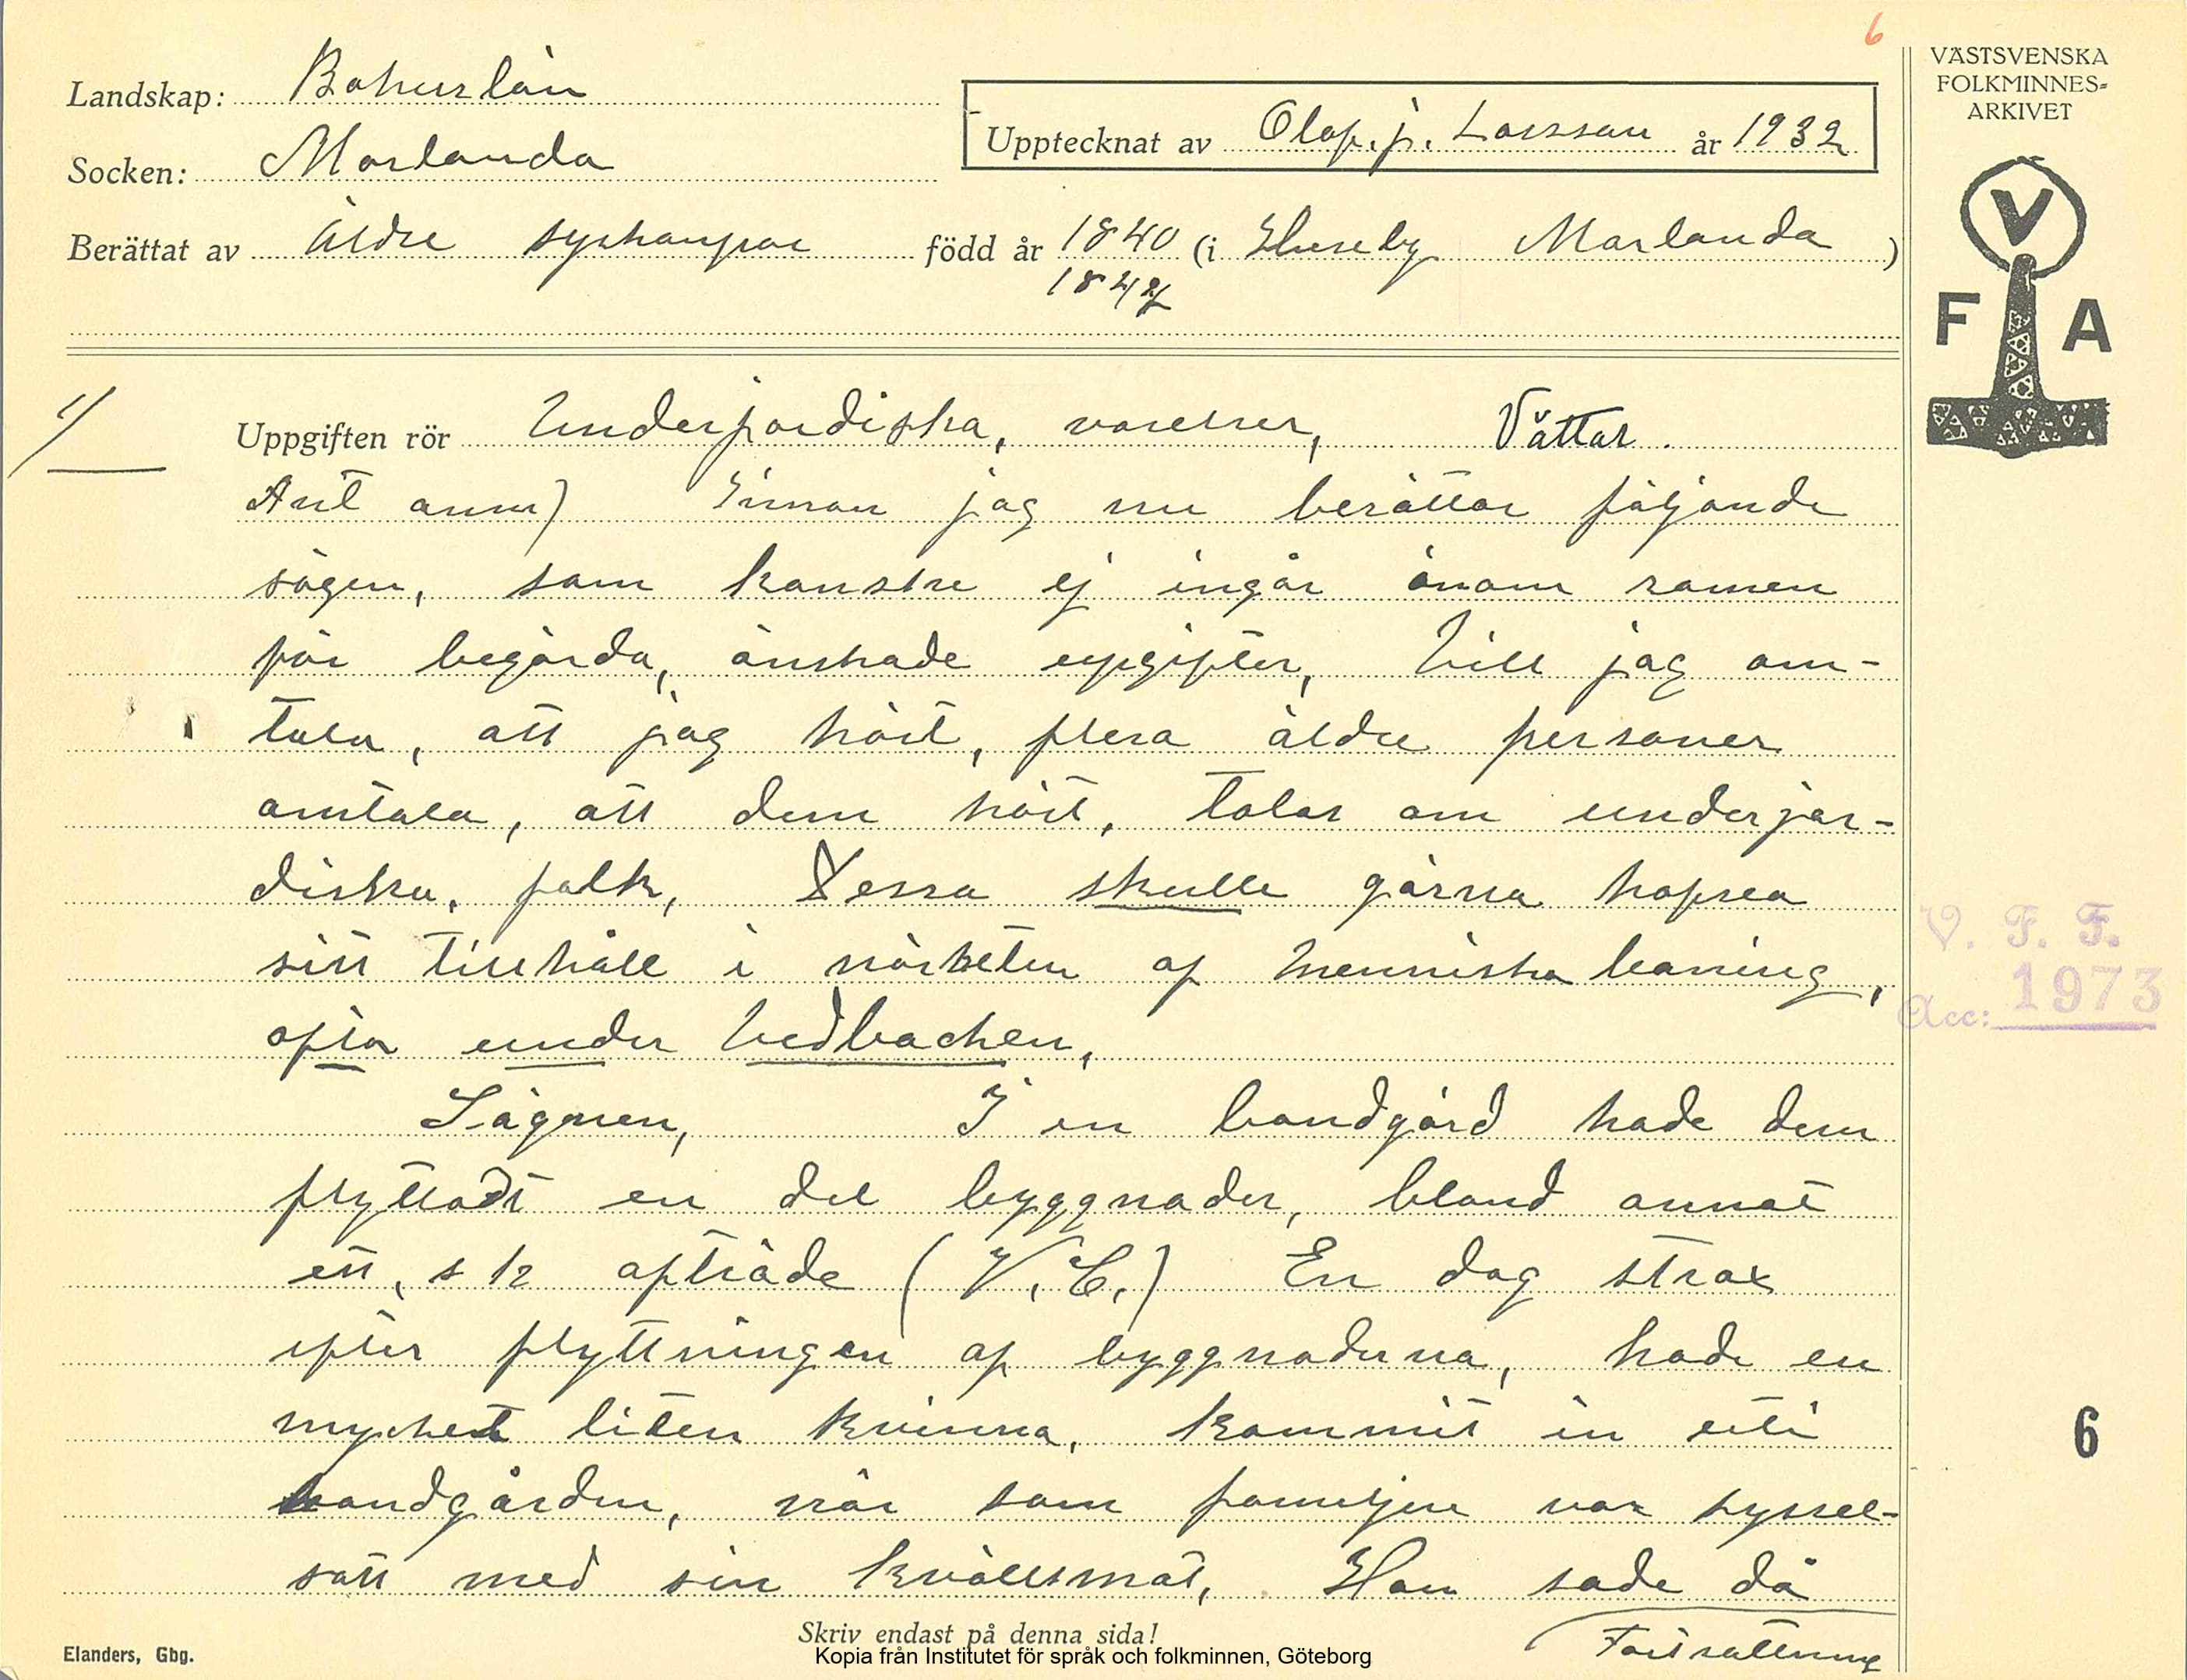 6
Landskap: Bohuslän
Socken: Morlanda
Upptecknat av Olof. j. Larsson år 1932
VÄSTSVENSKA
FOLKMINNES-
ARKIVET
Berättat av Äldre syskonpar född år 1840 (i Huseby Morlanda )
1842
V
F A
1/
Uppgiften rör Underjordiska, varelser, Vättar.
Ant anm) Innan jag nu berättar följande
sägen, som kanske ej ingår inom ramen
för begärda, önskade uppgifter, Vill jag om-
tala, att jag hört, flera äldre personer
omtala, att dem hört, talas om underjor-
diska, folk, Dessa skulle gärna hafva
sitt tillhåll i närheten af Menniska boning,
ofta under Vedbacken,
Sägnen, I en bondgård hade dem
flyttadt en del byggnader, bland annat
ett, s k afträde (V. C.) En dag strax
efter flyttningen af byggnaderna, hade en
mycket liten kvinna, kommit in uti
bondgården, när som familjen var syssel-
satt med sin kvällsmat, Hon sade då
Fortsättning
V. F. F.
Acc: 1973
6
Skriv endast på denna sida!
Elanders, Gbg.
Kopia från Institutet för språk och folkminnen, Göteborg